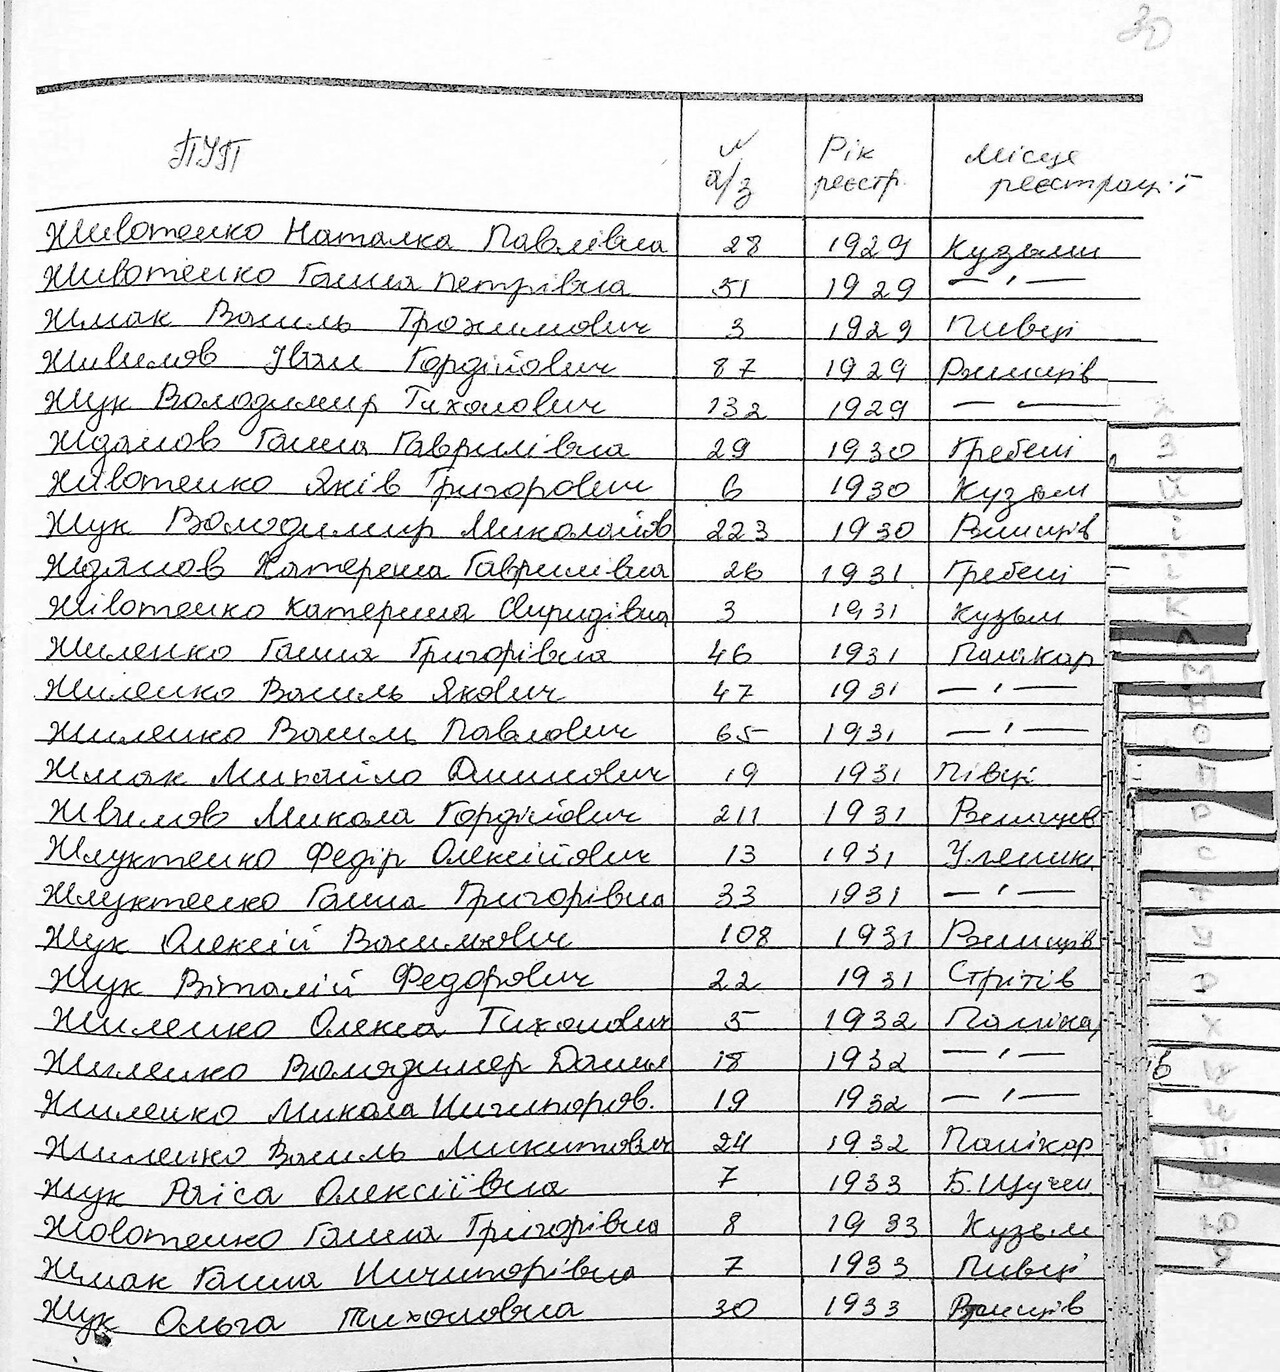 30
ПУП № а/з Рік реєстр. Місце реєстрації
Животенко Наталка Павлівна 28 1929 Кузьмин
Животенко Ганна Петрівна 31 1929 — " —
Жмак Василь Трохимович 3 1929 Пивці
Живилов Іван Гордійович 87 1929 Ржищів
Жук Володимир Тихонович 132 1929 — " —
Жданов Ганна Гаврилівна 29 1930 Гребені
Животенко Яків Григорович 6 1930 Кузьм
Жук Володимир Миколайов 223 1930 Ржищів
Жданов Катерина Гаврилівна 26 1931 Гребені
Животенко Катерина Спиридівна 3 1931 Кузьм
Жиленко Ганна Григорівна 46 1931 Панікар
Жиленко Василь Якович 47 1931 — " —
Жиленко Васил Павлович 65 1931 — " —
Жмак Михайло Данилович 19 1931 Півці
Жвилов Микола Гордійович 211 1931 Ржищев
Жлуктенко Федір Олексійович 13 1931 Уляник
Жлуктенко Ганна Григорівна 33 1931 — " —
Жук Олексій Васильович 108 1931 Ржищів
Жук Віталій Федорович 22 1931 Стритів
Жиленко Олекса Тихонович 5 1932 Паніка
Жиленко Володимер Данил 18 1932 — " —
Жиленко Микола Ничипоров. 19 1932 — " —
Жиленко Василь Микитович 24 1932 Панікар
Жук Раїса Олексіївна 7 1933 Б. Щучин
Жовотенко Ганна Григорівна 8 1933 Кузьм
Жмак Ганна Ничипорівна 7 1933 Пивці
Жук Ольга Тихоновна 30 1933 Ржищів